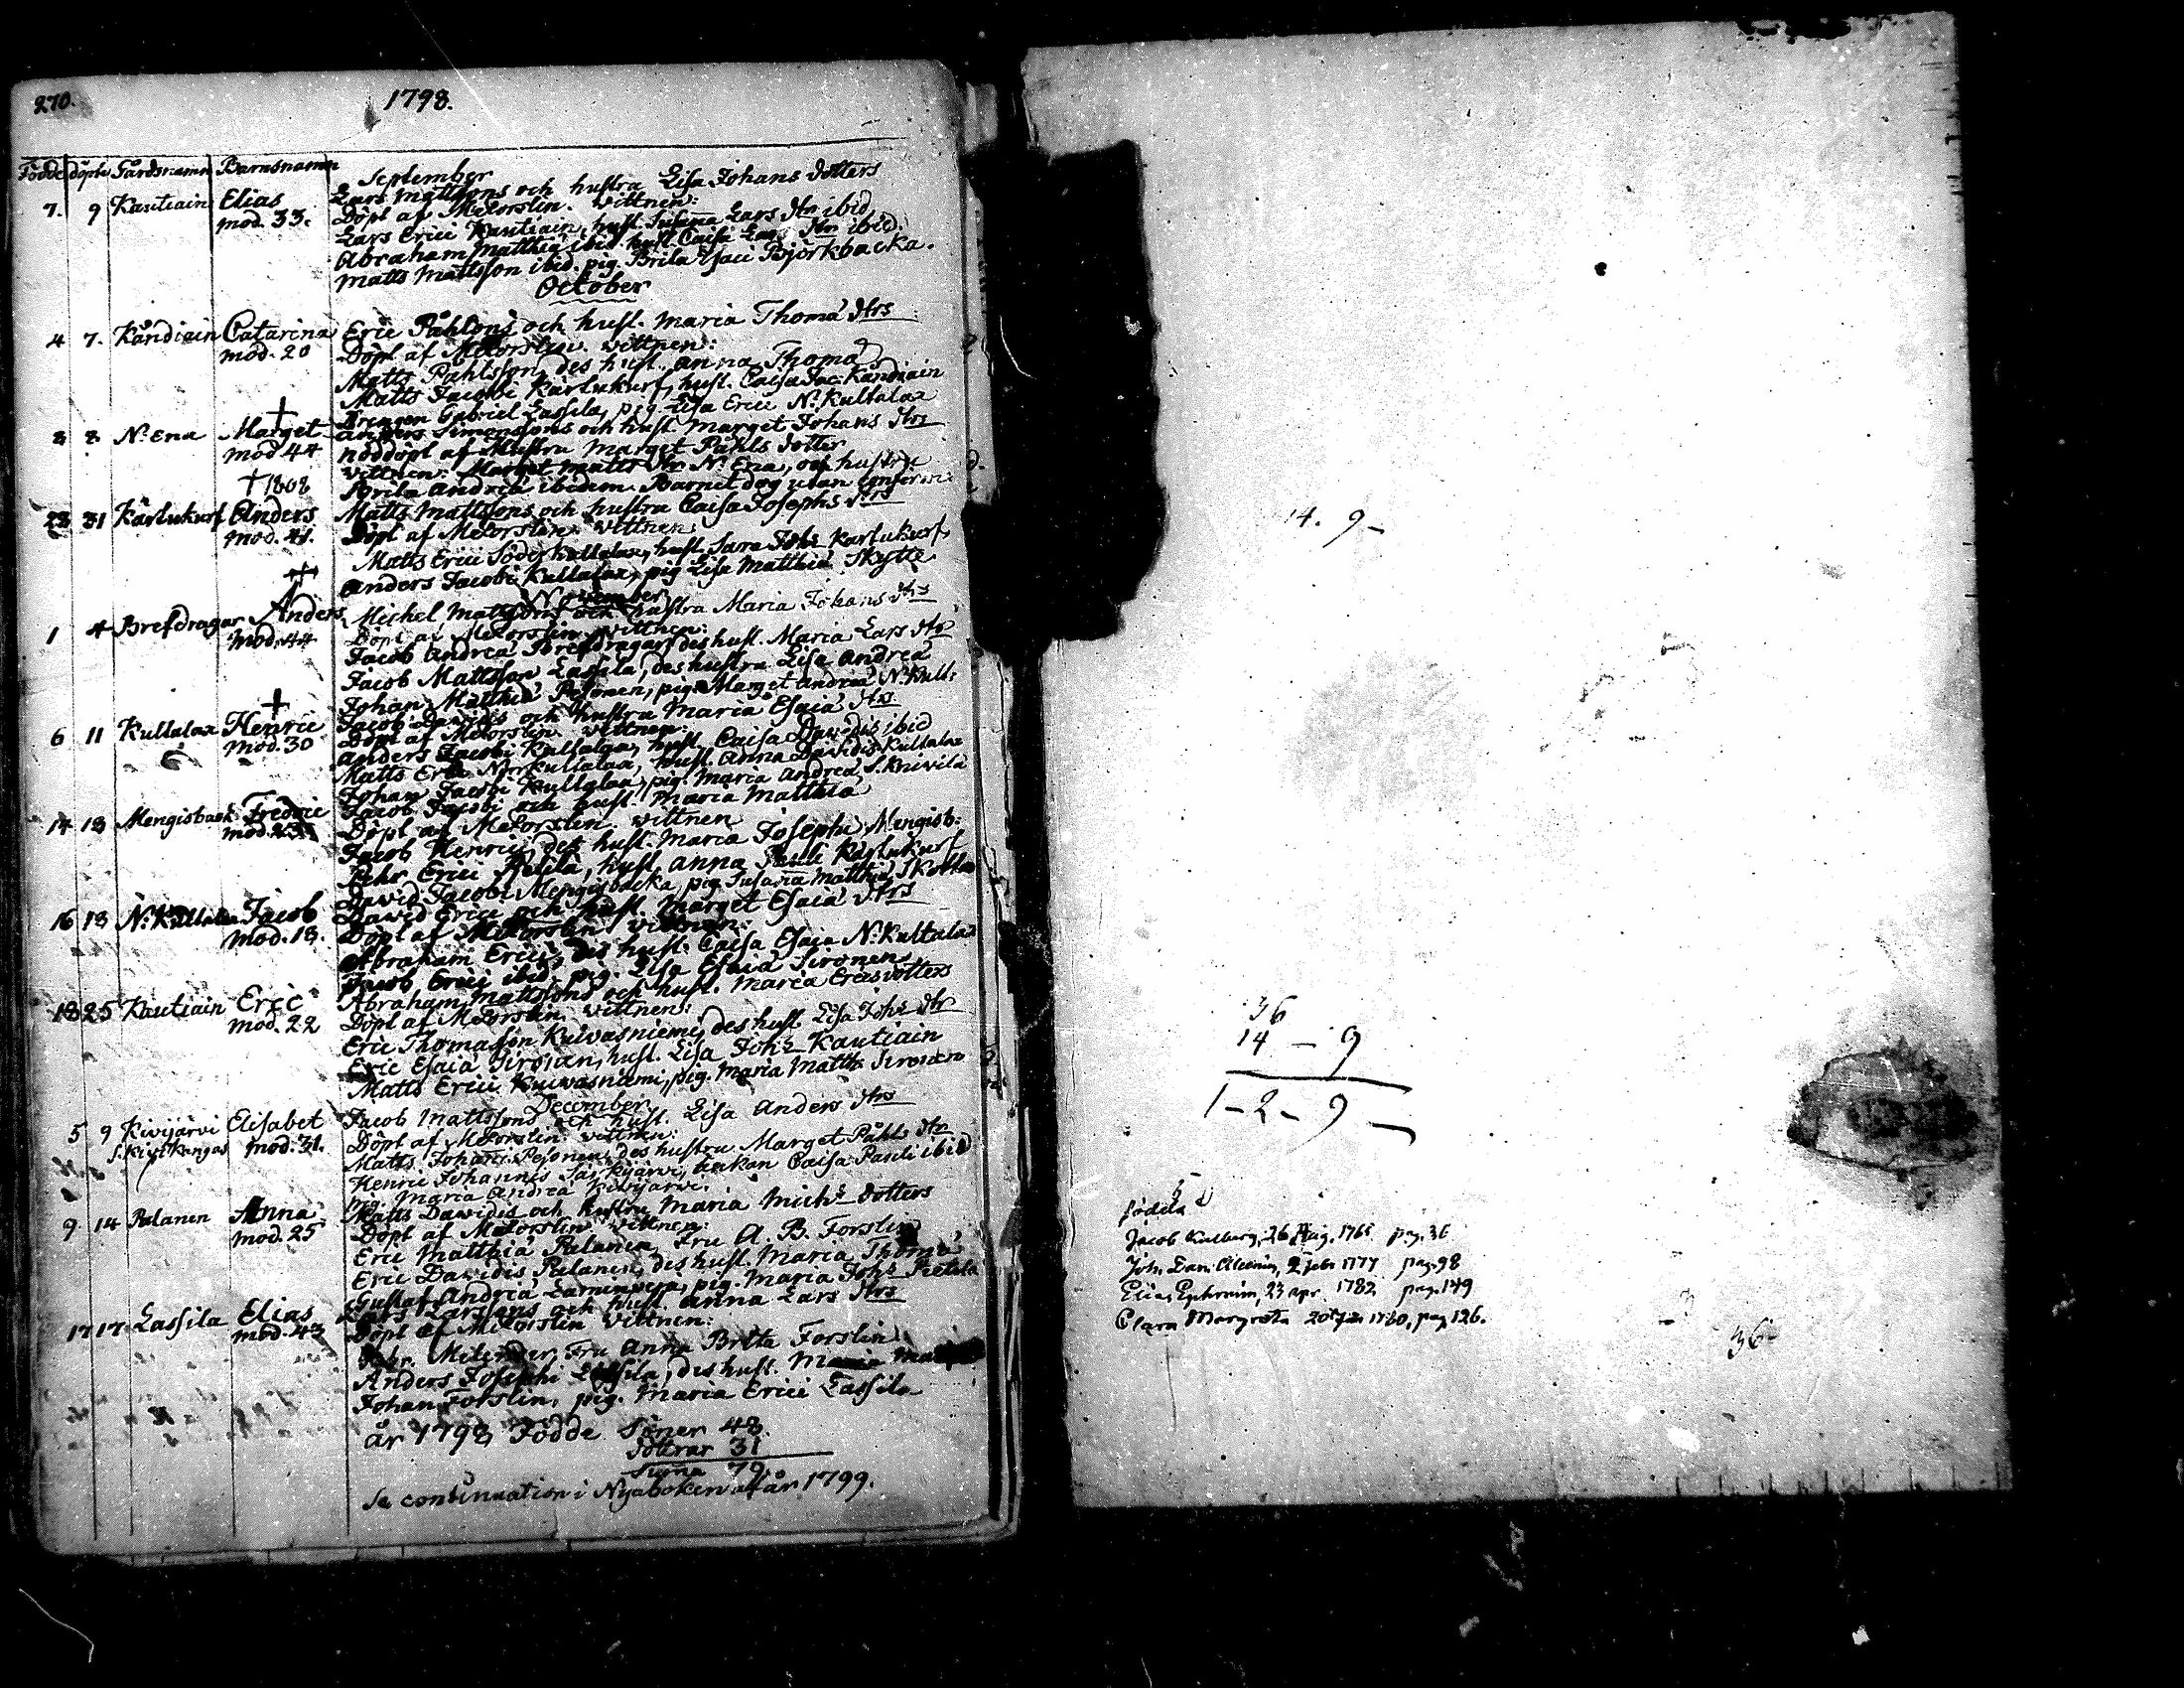 270.
1798.
Födde döpte Gårdsnamn Barnsnamn
September
7. 9 Kautiain Elias Lars Mattssons och hustru Lisa Johans dotters
mod. 33. Döpt af M:Forslin. vittnen:
Lars Erici Kautiain, hust. Susanna Lars dtr ibid.
Abraham Matthiä ibid. hust. Caisa Lars dtr ibid.
Matts Mattsson ibid. pig. Brita Esaci Björkbacka.
October
4 7. Kåndiain Catarina Eric Påhlsons och hust. Maria Thomä dtrs
mod. 20 Döpt af M:Forslin. vittnen:
Matts Påhlsson, des hust. Anna Thomä
Matts Jacobi Karlukurf, hust. Caisa Jac: Kandiain
Drengen Gabriel Lassila, pig. Lisa Erici N. Kultalax
8 8 N: Ena Marget Anders Simonssons och hust. Marget Johans dtrs
mod 44 nöddöpt af Hustru Marget Påhls dotter
vittnen: Marget Matts dtr N: Ena, och hustru
Brita Andreä ibidem. Barnet dog utan
† 1808
23 31 Kårlukurf Anders Matts Mattssons och hustru Caisa Josephs dtrs
mod. 41. Döpt af M:Forslin. vittnen:
Matts Erici Söderkultalax, hust. Sara Johs Karlukurf,
Anders Jacobi Kultalax, pig Lisa Matthiä Skytte
November
1 4 Brefdragar Anders Michel Mattssons och hustru Maria Johans dtrs
mod. 44 Döpt af M:Forslin. vittnen:
Jacob Andreä Brefdragar, des hust. Maria Lars dtr
Jacob Mattsson Lassila, des hustru Lisa Andreä
Johan Matthiä Pesonen, pig. Marget Andreä N. Kult:
6 11 Kultalax Henric Jacob Davidis och Hustru Maria Esaiä dtrs
mod. 30 Döpt af M:Forslin. vittnen:
Anders Jacobi Kultalax, hust. Caisa Davidis ibid
Matts Erici Norrkultalax, hust. Anna Davidis Kultalax
Johan Jacobi Kultalax, pig. Maria Andreä S. Knivilä
14 18 Mengisback Fredric Jacob Jacobi och hust. Maria Matthiä
Döpt af M:Forslin. vittnen
Jacob Henrici, des hust. Maria Josephi Mengisb:
Pehr Erici Pelila, hust. Anna Pauli Karlukurf
David Jacobi Mengisbacka, pig. Susanna Matthiä
16 18 N. Kultalax Jacob David Erici och hust. Marget Esaiä dtrs
mod. 18. Döpt af M:Forslin. vittnen:
Abraham Erici, des hust. Caisa Esaiä N. Kultalax
Jacob Erici ibid. pig. Lisa Esaiä Sironen
18 25 Kautiain Eric Abraham Mattssons och hust. Maria Ericsdotters
mod. 22 Döpt af M:Forslin. vittnen:
Eric Thomasson Kuivasniemi, des hust. Lisa Johs dtr
Eric Esaiä Sironen, hust. Lisa Johs Kautiain
Matts Erici Kuivasniemi, pig. Maria Matth: Sironen
December
5 9 Kivijärvi Elisabet Jacob Mattssons och hust. Lisa Anders dtrs
S. Kivikangas mod. 31. Döpt af M:Forslin. vittnen:
Matts Johan: Pesonen, des hustru Marget Påhls dtr
Henric Johannis Särkijärvi, änkan Caisa Pauli ibid
pig. Maria Andreä Kivijärvi.
9. 14 Palanen Anna Matts Davidis och hustru Maria Michs dotters
mod. 25 Döpt af M:Forslin vittnen:
Eric Matthiä Palanen, Fru A. B. Forslin
Eric Davidis Palanen, des hust. Maria Thomä
Gustaf Andreä Laminperä, pig. Maria Johs Pietilä
17 17 Lassila Elias Lars Larssons och hust. Anna Lars dtrs
mod. 43 Döpt af M:Forslin vittnen:
Fru Anna Brita Forslin
Anders Josephi Lassila, des hust. Maria
Johan Forslin, pig. Maria Erici Lassila
år 1798 Födde Söner 48.
Döttrar 31
Summa 79.
Se continuation i Nyaboken af år 1799.
14. 9 –
36
14 – 9
1 – 2 – 9 –
födda
Jacob 26 Aug. 1765 pag. 36
Joh. Dan. 2 febr 1777 pag. 98
Elias Ephraim, 23 apr. 1782 pag. 149
Clara Margreta 1780, pag 126.
36